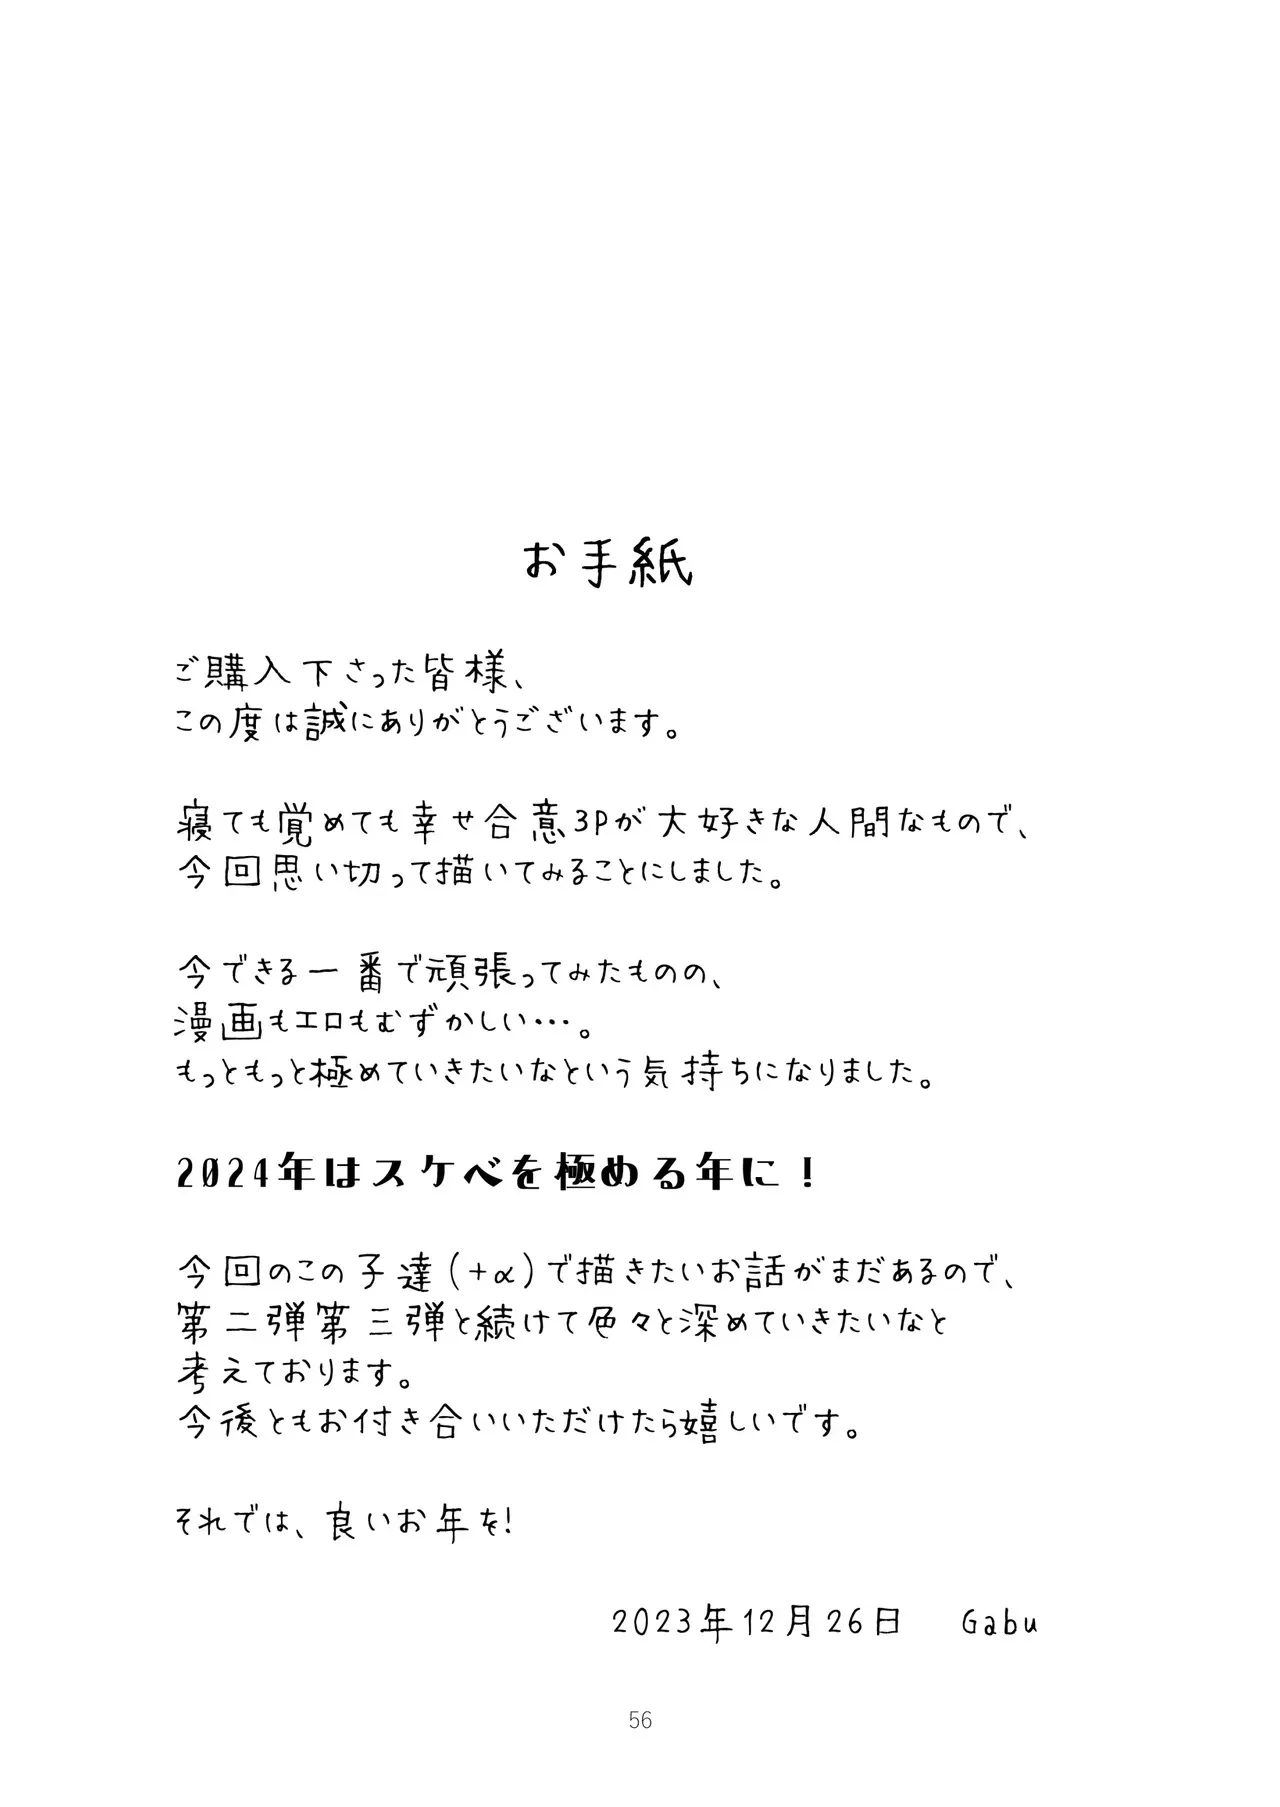 お手紙
ご購入下さった皆様、
この度は誠にありがとうございます。
寝ても覚めても幸せ合意3Pが大好きな人間なもので、
今回思い切って描いてみることにしました。
今できる一番で頑張ってみたものの、
漫画もエロもむずかしい…。
もっともっと極めていきたいなという気持ちになりました。
2024年はスケベを極める年に！
今回のこの子達(+α)で描きたいお話がまだあるので、
第二弾第三弾と続けて色々と深めていきたいなと
考えております。
今後ともお付き合いいただけたら嬉しいです。
それでは、良いお年を!
2023年12月26日　Gabu
56